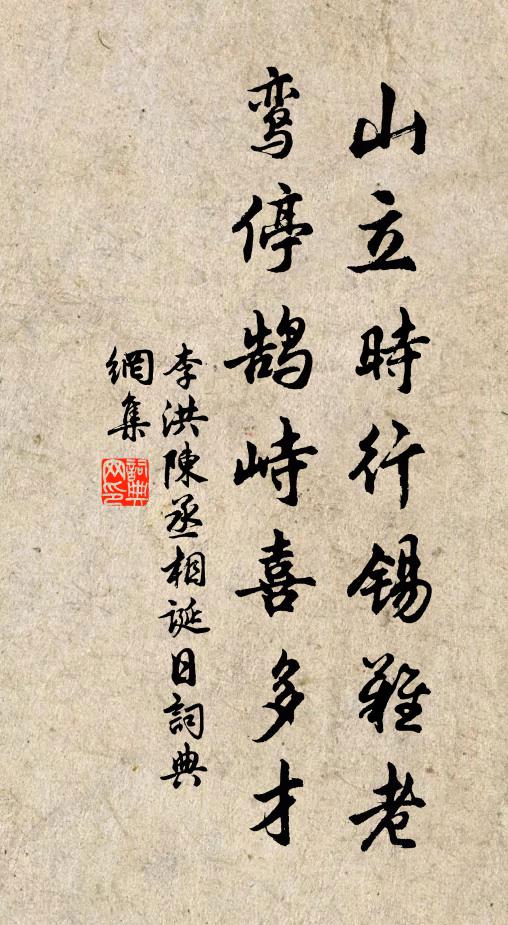 山立時行錫難老
鸾停鹄峙喜多才
李洪陳丞相誕日詞典
網集
詞典
网印